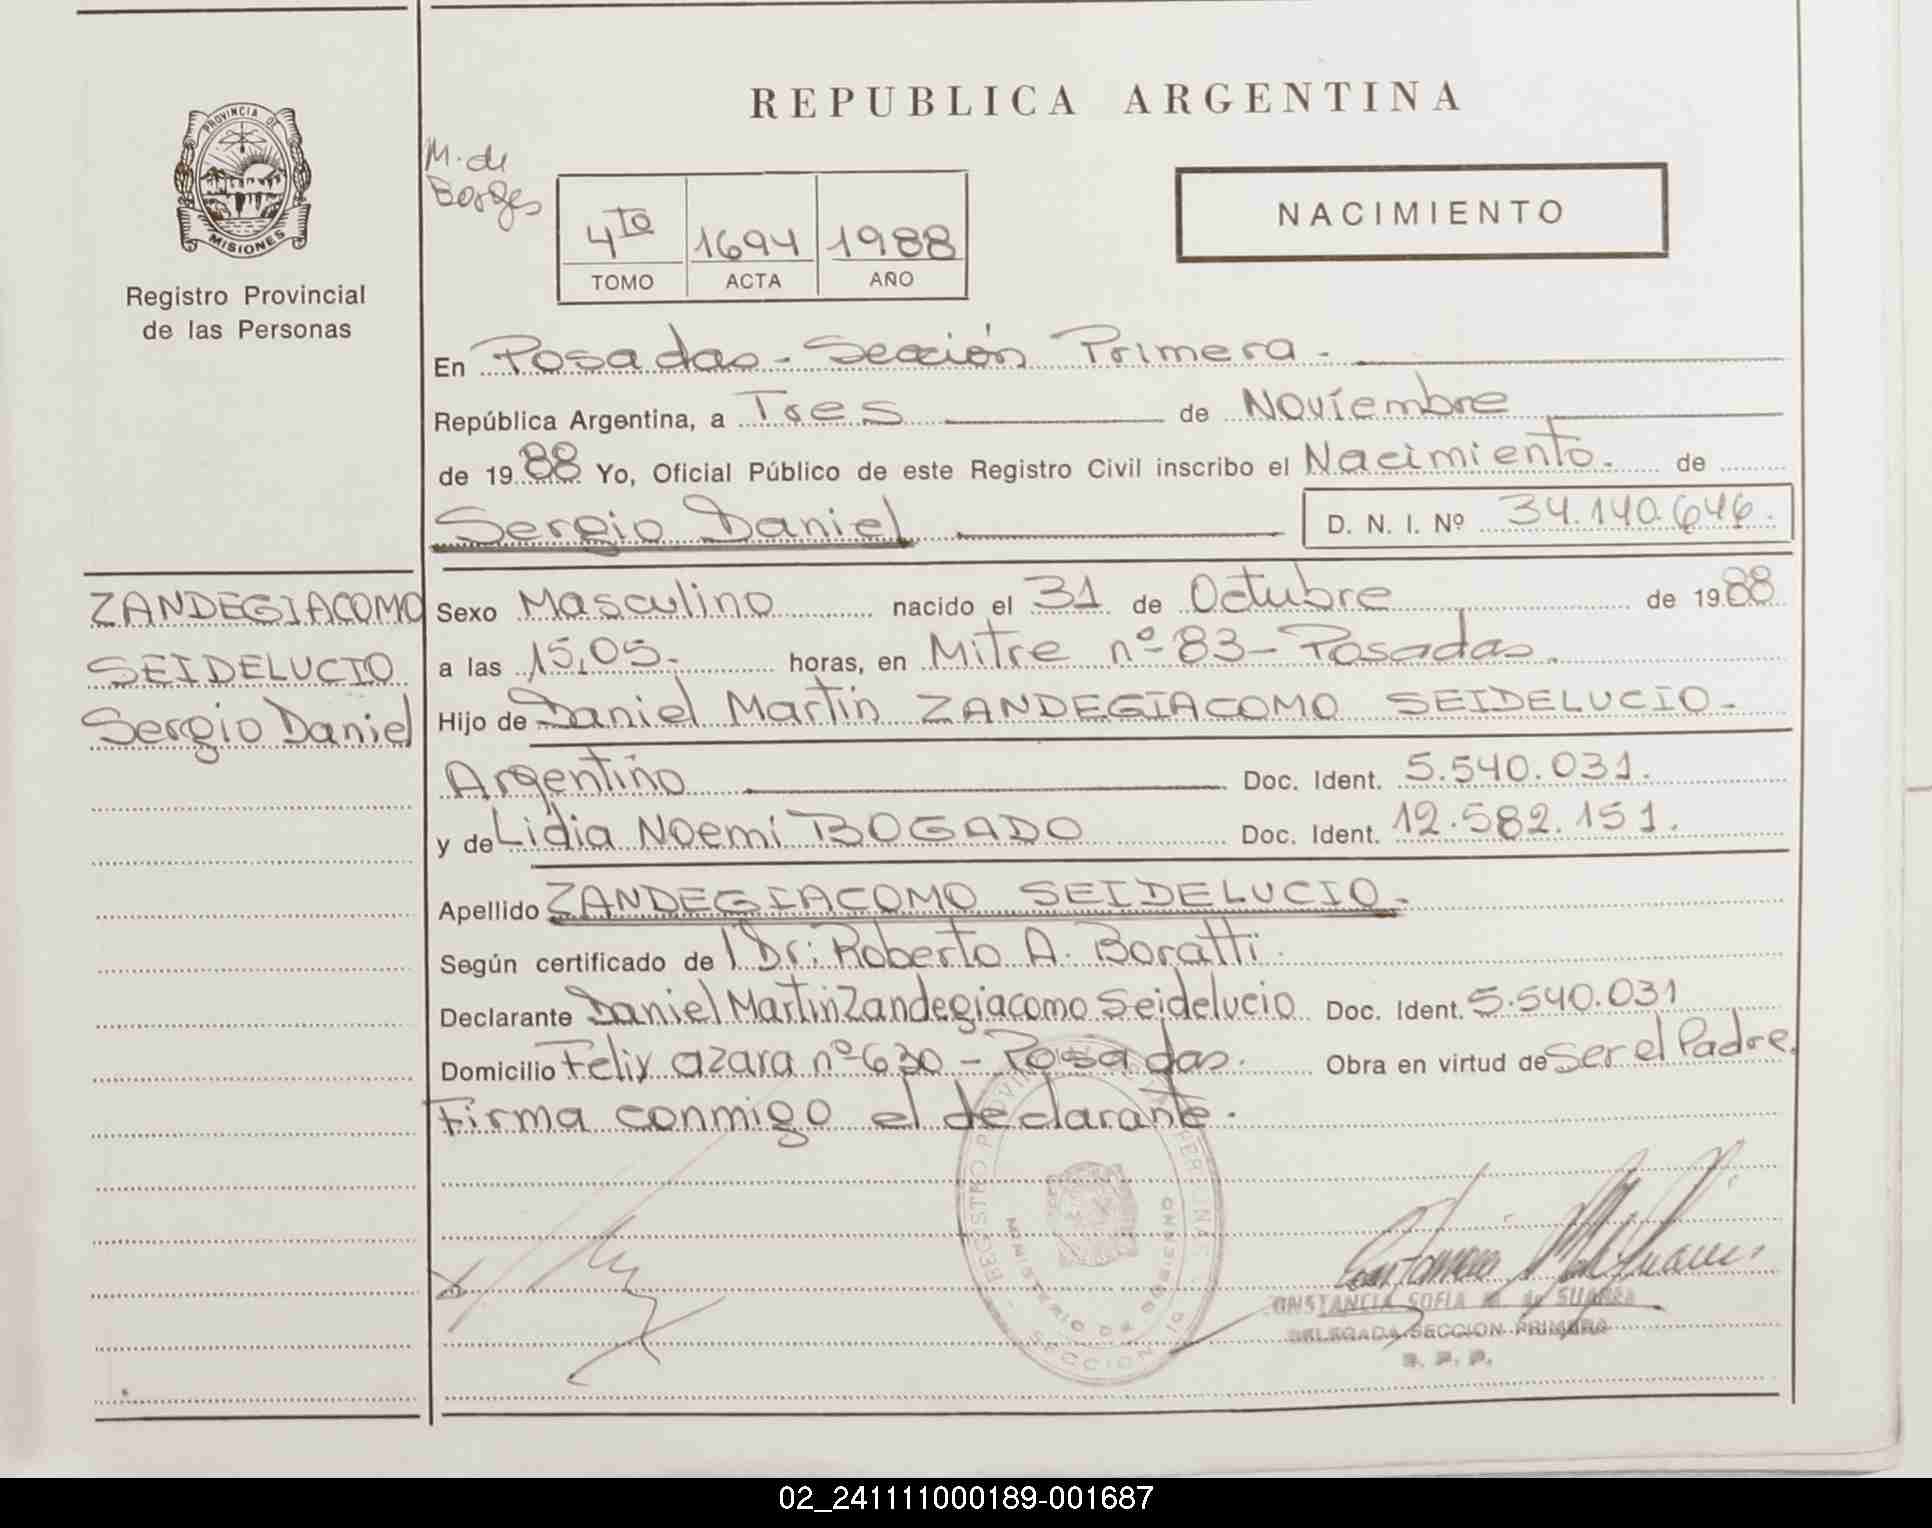 PROVINCIA DE
MISIONES
Registro Provincial
de las Personas
ZANDEGIACOMO
SEIDELUCIO
Sergio Daniel
REPUBLICA ARGENTINA
M. de
Borges
NACIMIENTO
4to 1694 1988
TOMO ACTA AÑO
En Posadas - Sección Primera -
República Argentina, a Tres de Noviembre
de 19 88 Yo, Oficial Público de este Registro Civil inscribo el Nacimiento. de
Sergio Daniel D. N. I. Nº 34.140.646.
Sexo Masculino nacido el 31 de Octubre de 19 88
a las 15,05.- horas, en Mitre nº 83 - Posadas.
Hijo de Daniel Martin ZANDEGIACOMO SEIDELUCIO -
Argentino Doc. Ident. 5.540.031.
y de Lidia Noemi BOGADO Doc. Ident. 12.582.151.
Apellido ZANDEGIACOMO SEIDELUCIO -
Según certificado de l Dr: Roberto A. Boratti.
Declarante Daniel Martin Zandegiacomo Seidelucio Doc. Ident. 5.540.031
Domicilio Felix azara nº 630 - Posadas. Obra en virtud de Ser el Padre.
Firma conmigo el declarante.
REGISTRO PROVINCIAL DE LAS PERSONAS
MINISTERIO DE GOBIERNO
SECCION 1a
CONSTANCIA SOFIA M. de SUAREZ
DELEGADA SECCION PRIMERA
R. P. P.
02_241111000189-001687